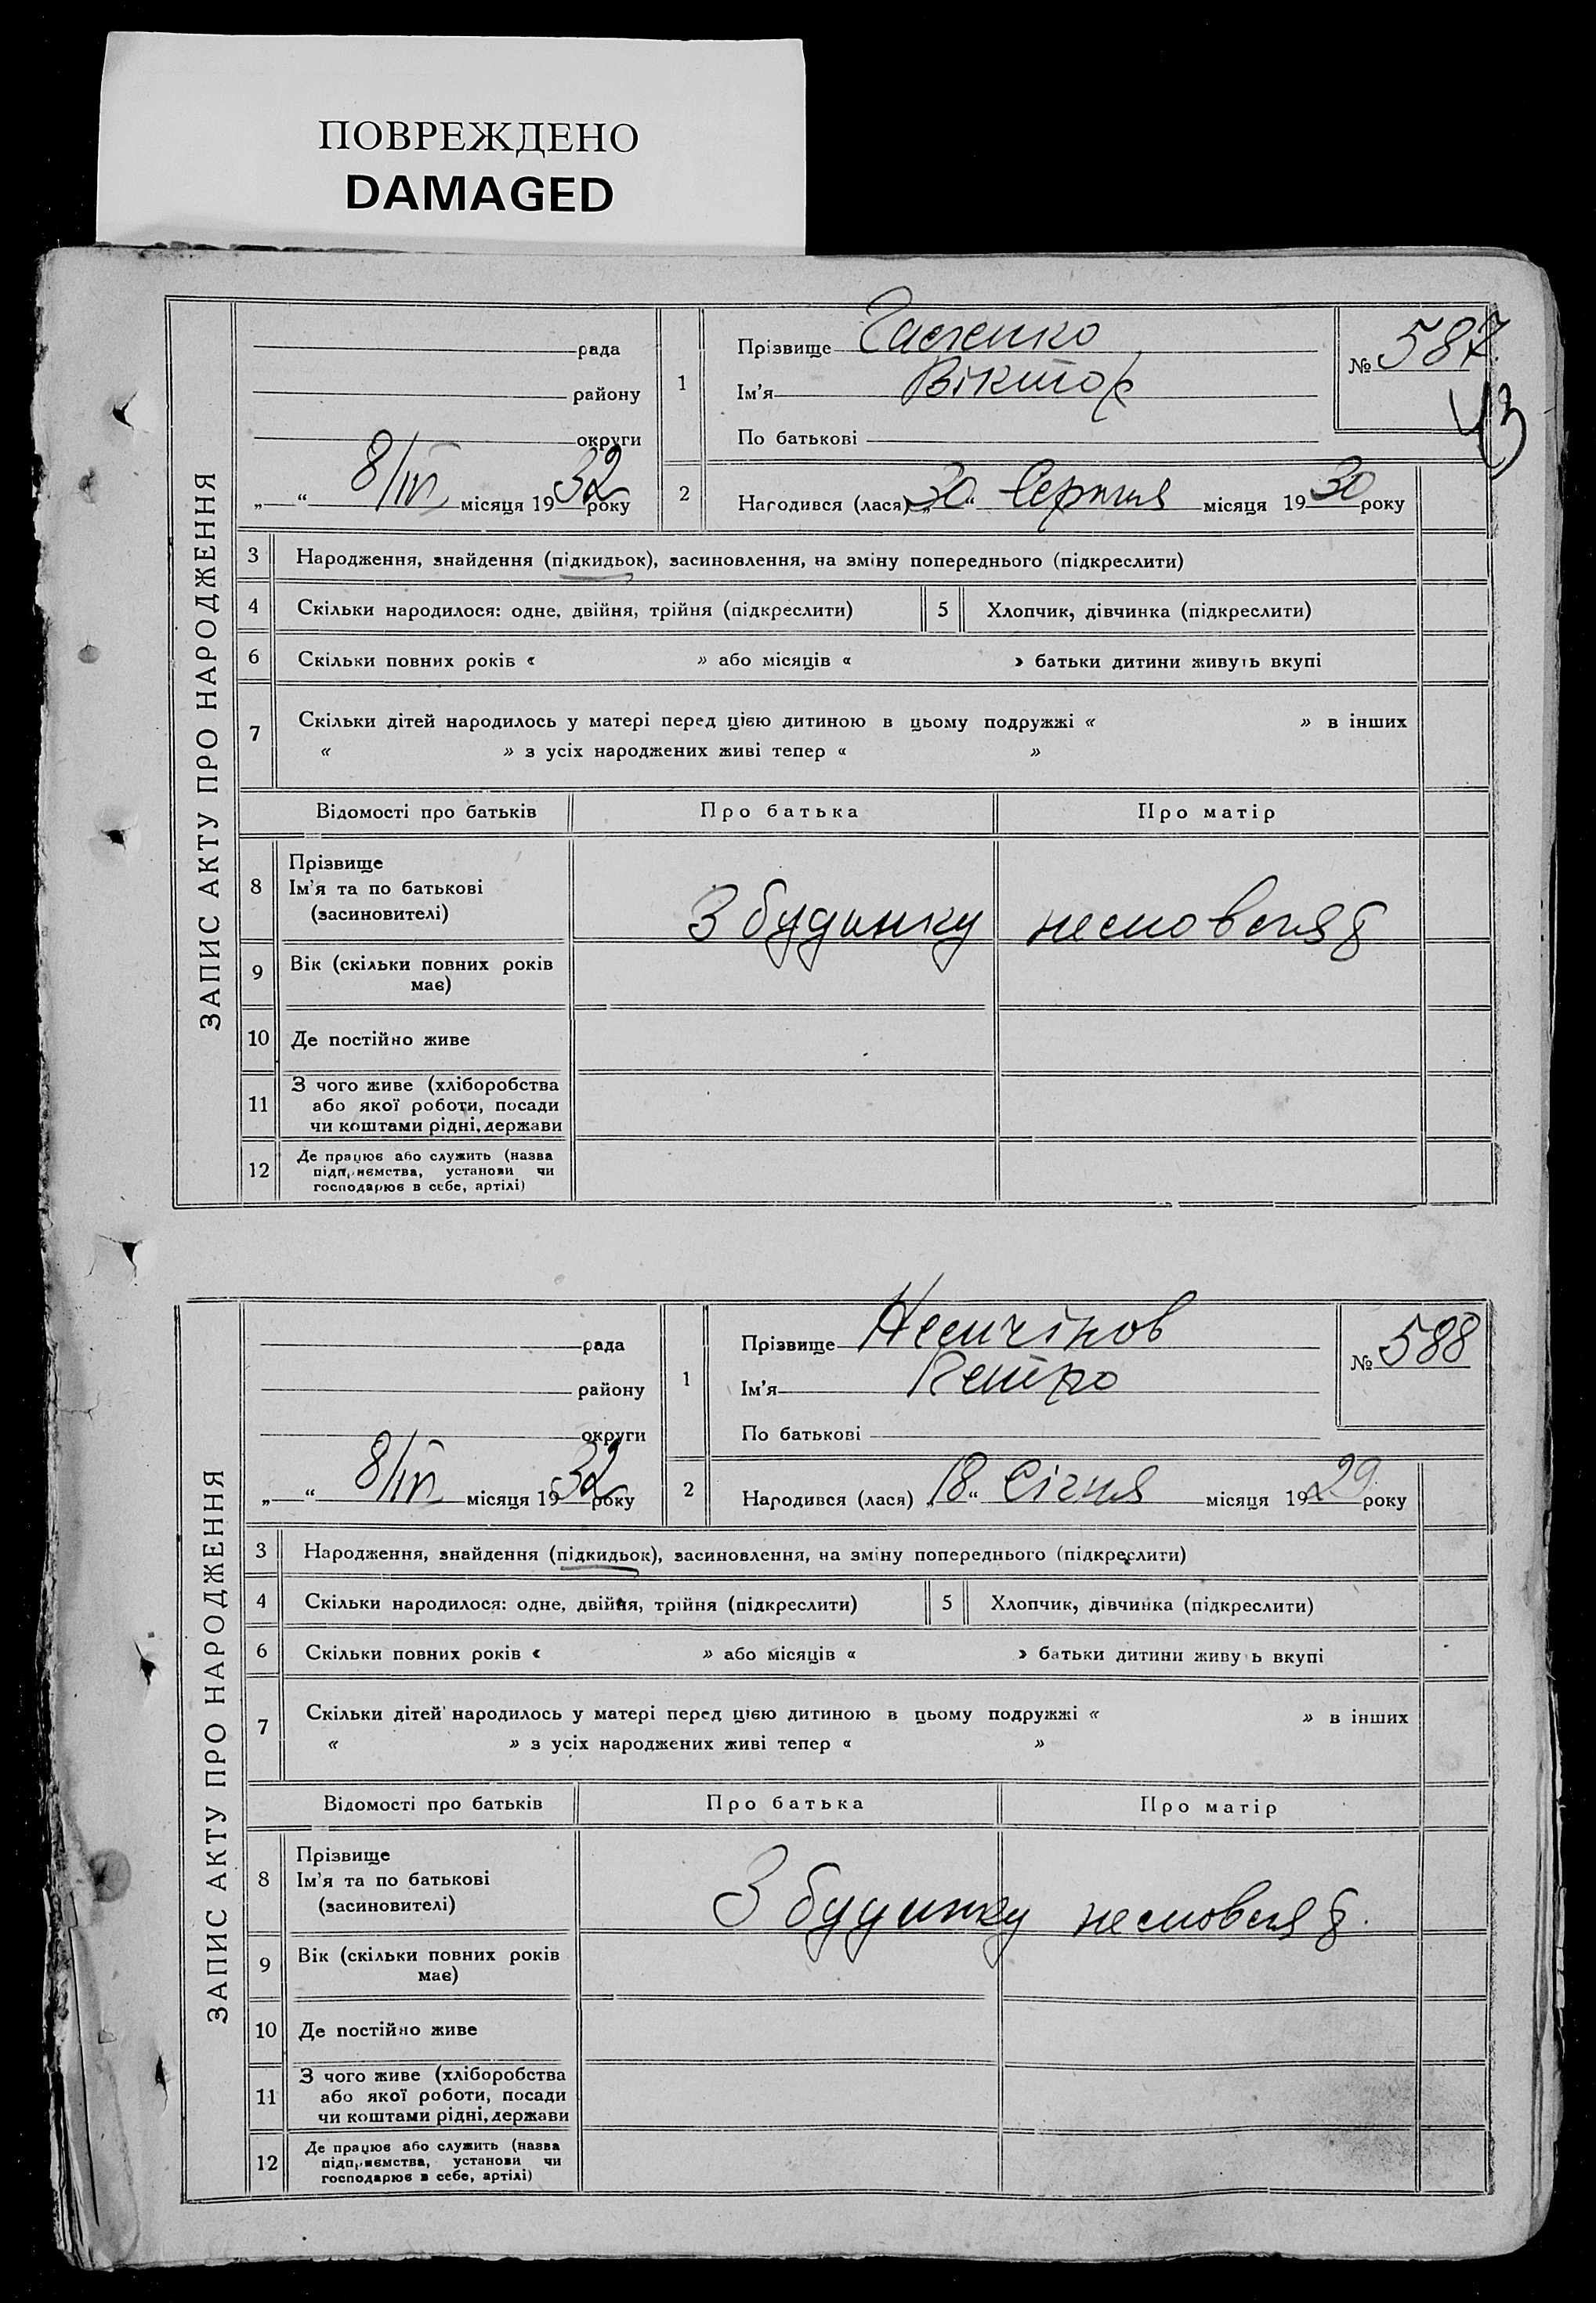 ПОВРЕЖДЕНО
DAMAGED
ЗАПИС АКТУ ПРО НАРОДЖЕННЯ
рада
району
округи
„ “ 8/III місяця 1932 року
1
Прізвище
Ім'я Віктор
По батькові
№ 587
43
2
Народився (лася) „30“ Серпня місяця 1930 року
3 Народження, знайдення (підкидьок), засиновлення, на зміну попереднього (підкреслити)
4 Скільки народилося: одне, двійня, трійня (підкреслити) 5 Хлопчик, дівчинка (підкреслити)
6 Скільки повних років « » або місяців « » батьки дитини живуть вкупі
7 Скільки дітей народилось у матері перед цією дитиною в цьому подружжі « » в інших
« » з усіх народжених живі тепер « »
Відомості про батьків Про батька Про матір
8 Прізвище
Ім'я та по батькові
(засиновителі)
З будинку немовлят
9 Вік (скільки повних років
має)
10 Де постійно живе
11 З чого живе (хліборобства
або якої роботи, посади
чи коштами рідні, держави
12 Де працює або служить (назва
підприємства, установи чи
господарює в себе, артілі)
ЗАПИС АКТУ ПРО НАРОДЖЕННЯ
рада
району
округи
„ “ 8/III місяця 1932 року
1
Прізвище
Ім'я Петро
По батькові
№ 588
2
Народився (лася) „18“ Січня місяця 1929 року
3 Народження, знайдення (підкидьок), засиновлення, на зміну попереднього (підкреслити)
4 Скільки народилося: одне, двійня, трійня (підкреслити) 5 Хлопчик, дівчинка (підкреслити)
6 Скільки повних років « » або місяців « » батьки дитини живу ь вкупі
7 Скільки дітей народилось у матері перед цією дитиною в цьому подружжі « » в інших
« » з усіх народжених живі тепер « »
Відомості про батьків Про батька Про матір
8 Прізвище
Ім'я та по батькові
(засиновителі)
З будинку немовлят.
9 Вік (скільки повних років
має)
10 Де постійно живе
11 З чого живе (хліборобства
або якої роботи, посади
чи коштами рідні, держави
12 Де працює або служить (назва
підприємства, установи чи
господарює в себе, артілі)